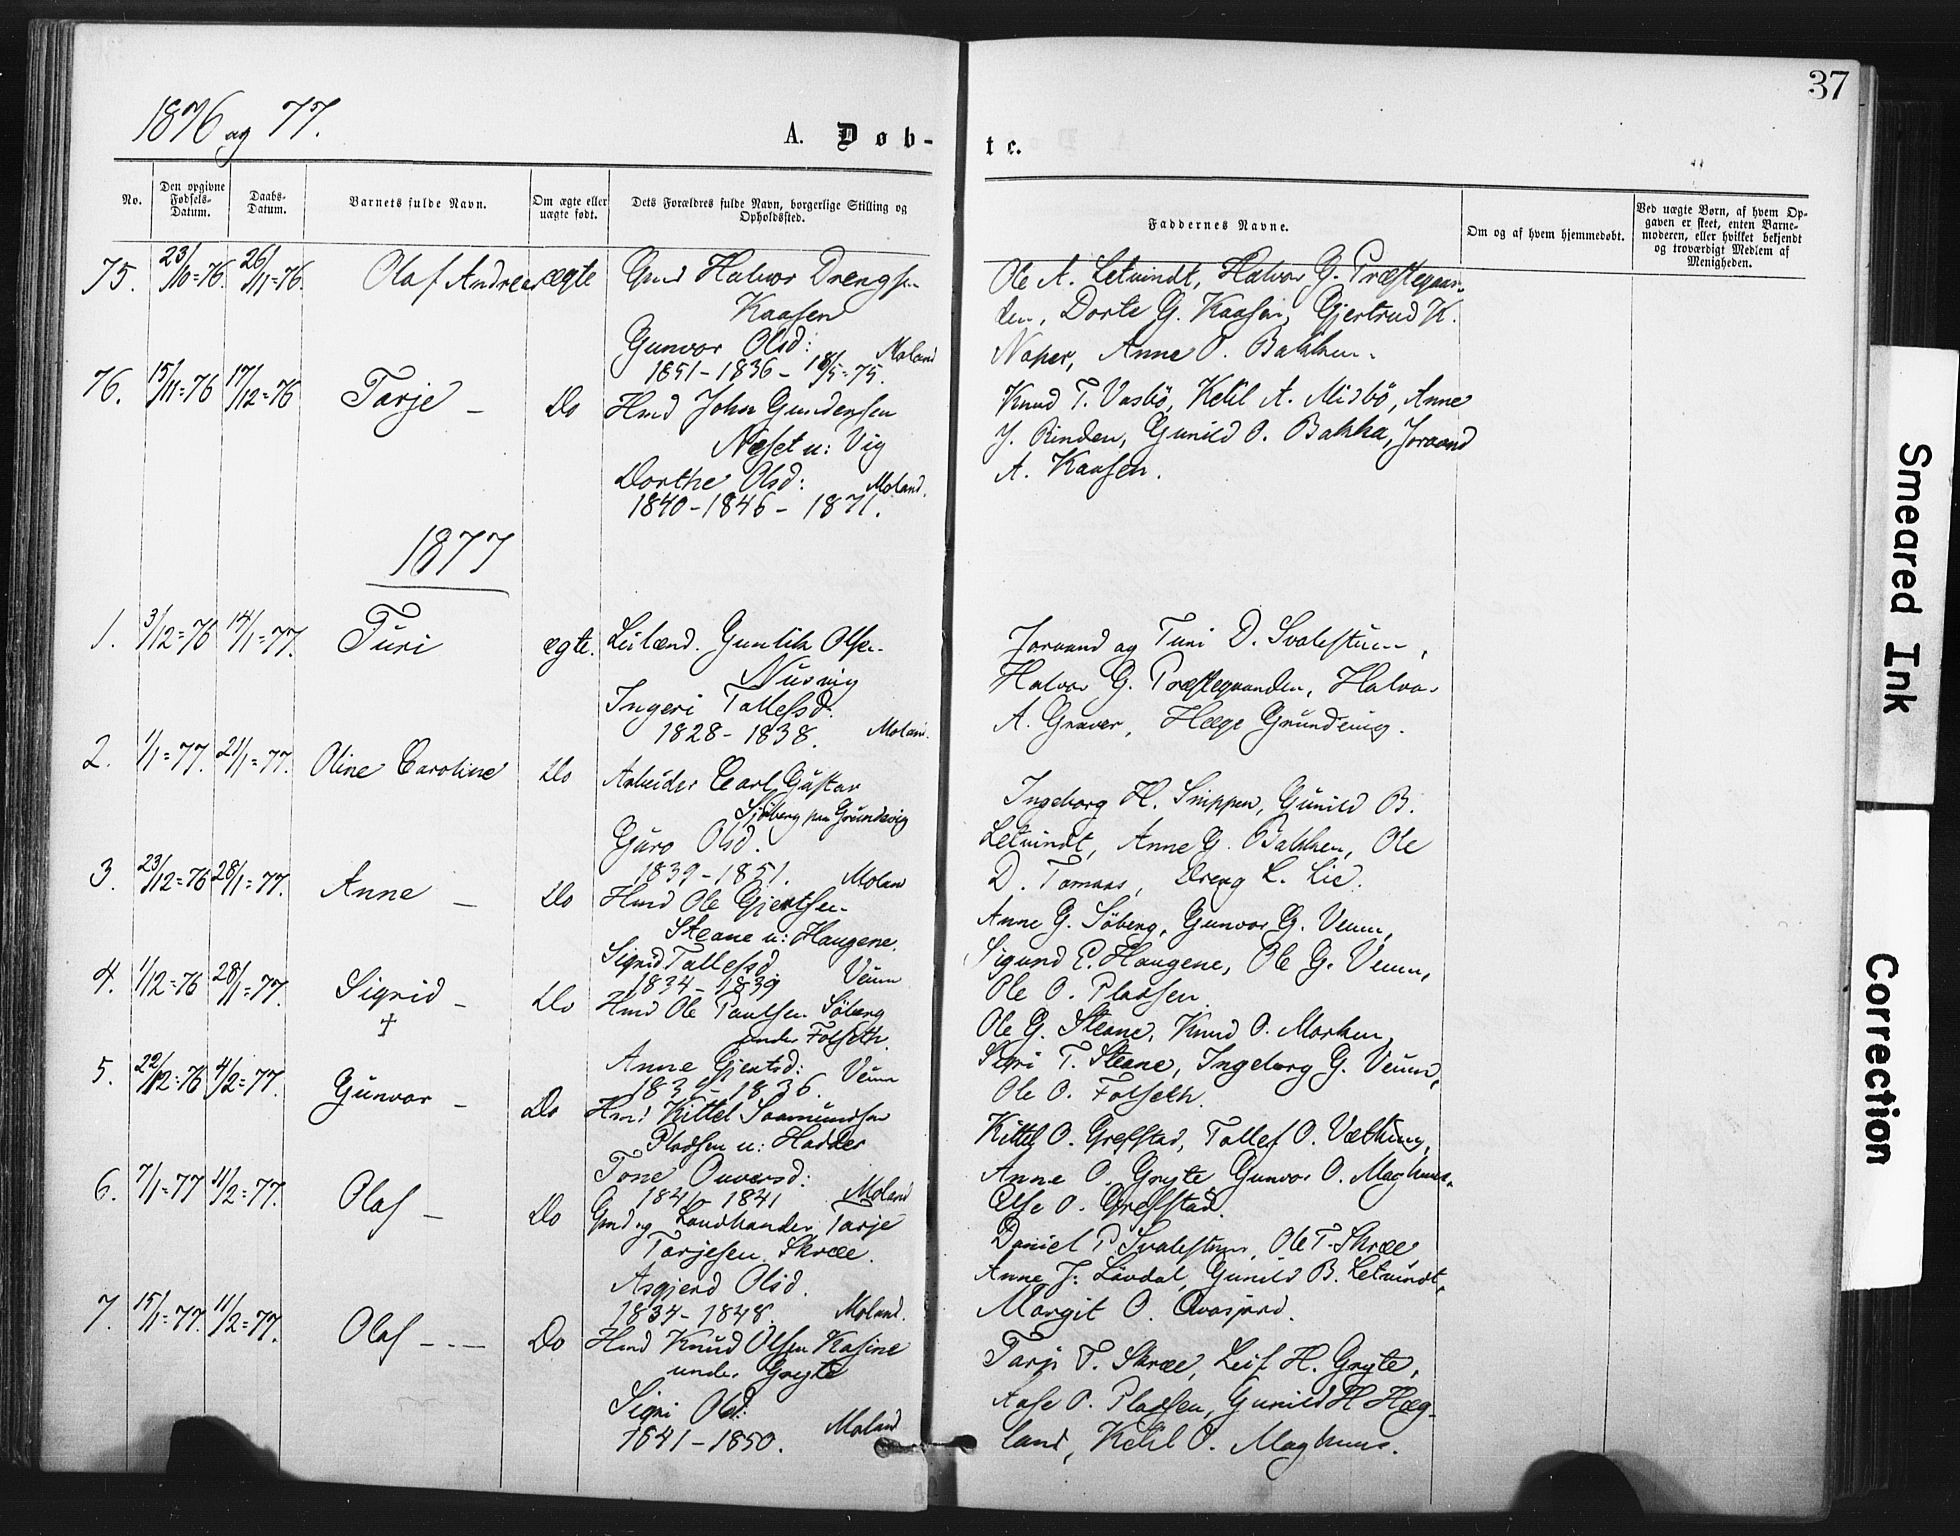 37
1876 og 77.
A. Døb-
te.
No.
Den opgivne Fødsels-Datum.
Daabs-Datum.
Barnets fulde Navn.
Om ægte eller uægte født.
Dets Forældres fulde Navn, borgerlige Stilling og Opholdssted.
Faddernes Navne.
Om og af hvem hjemmedøbt.
Ved uægte Børn, af hvem Opgaven er skeet, enten Barnemoderen, eller hvilket bekjendt og troværdigt Medlem af Menigheden.
75. 23/10=76. 26/11=76. Olaf Andreas ægte Gmd Halvor Drengsn
Kaasen
Gunvor Olsd: Moland
1851-1836-18/5=75.
Ole A. Letvindt, Halvor G. Præstegaar-
den, Dorte G. Kaasen, Gjertrud K.
Naper, Anne O. Bakken.
76. 15/11=76 17/12=76 Tarje - Do Hmd John Gundersen
Næset u: Vig
Dorthe Olsd: Moland.
1840-1846-1871.
Knud T. Vasbö, Ketil A. Midbö, Anne
J. Rinden, Gunild O. Bakka, Joraand
A. Kaasen.
1877
1. 3/12=76 14/1=77. Turi ægte. Leilænd. Gunlik Olsn.
Nusvig
Ingeri Tallefsd.
1828-1838. Moland.
Joraand og Turi D. Svalestuen,
Halvor G. Præstegaarden, Halvor
A. Graver, Hæge Grundevig.
2. 1/1=77. 21/1=77. Oline Caroline Do Arbeider Carl Gustav
Sjöberg paa Grundevig
Guro Olsd.
1839-1851. Moland
Ingeborg H. Snippen, Gunild B.
Letvindt, Anne G. Bakken, Ole
D. Tomaas, Dreng L. Lie.
3. 23/12=76 28/1=77. Anne - Do Hmd Ole Gjertsen
Steane u: Haugene.
Sigrid Tallefsd Veum
1834-1839
Anne G. Söberg, Gunvor G. Veum,
Sigund E. Haugene, Ole G. Veum,
Ole O. Pladsen.
4. 1/12=76 28/1=77. Sigrid - Do Hmd Ole Paulsen Söberg
under Folseth.
Anne Gjertsd: Veum
1839-1836.
†
Ole G. Steane, Knud O. Morken,
Sigri T. Steane, Ingeborg G. Veum,
Ole O. Folseth.
5. 22/12=76 4/2=77. Gunvor - Do Hmd Kittel Saamundsen
Pladsen u: Hadder
Tone Anversd:
1840-1841 Moland
Kittel O. Grefstad, Tallef O. Væthung,
Anne O. Gryte Gunvor O. Maghuus.
Else O. Grefstad.
6. 7/1=77 11/2=77. Olaf - Do Gmd og Landhandler Tarje
Tarjesen Skree.
Asgjerd Olsd.
1834-1848. Moland.
Daniel P. Svalestuen, Ole T. Skree
Anne J. Lövdal, Gunild B. Letvindt,
Margit O. Qvasjord.
7. 15/1=77. 11/2=77. Olaf - - - Do Hmd Knud Olsen Kasine
under Gryte
Sigri Olsd:
1841-1850. Moland
Tarje T. Skree, Leif H. Gryte,
Aase O. Pladsen, Gunild H. Hæg-
land, Ketil O. Maghuus.
Smeared Ink
Correction